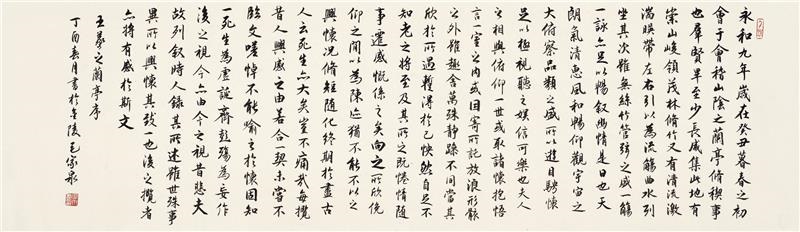 永和九年歲在癸丑暮春之初
會于會稽山陰之蘭亭脩稧事
也羣賢畢至少長咸集此地有
崇山峻領茂林脩竹又有清流激
湍暎帶左右引以為流觴曲水列
坐其次雖無絲竹管弦之盛一觴
一詠亦足以暢敘幽情是日也天
朗氣清惠風和暢仰觀宇宙之
大俯察品類之盛所以遊目騁懷
足以極視聽之娛信可樂也夫人
之相與俯仰一世或取諸懷抱悟
言一室之內或因寄所託放浪形骸
之外雖趣舍萬殊靜躁不同當其
欣於所遇蹔得於己怏然自足不
知老之將至及其所之既惓情隨
事遷感慨係之矣向之所欣俛
仰之間以為陳迹猶不能不以之
興懷況脩短隨化終期於盡古
人云死生亦大矣豈不痛哉每攬
昔人興感之由若合一契未嘗不
臨文嗟悼不能喻之於懷固知
一死生為虛誕齊彭殤為妄作
後之視今亦由今之視昔悲夫
故列敘時人錄其所述雖世殊事
異所以興懷其致一也後之攬者
亦將有感於斯文
王羲之蘭亭序
丁酉春月書於金陵